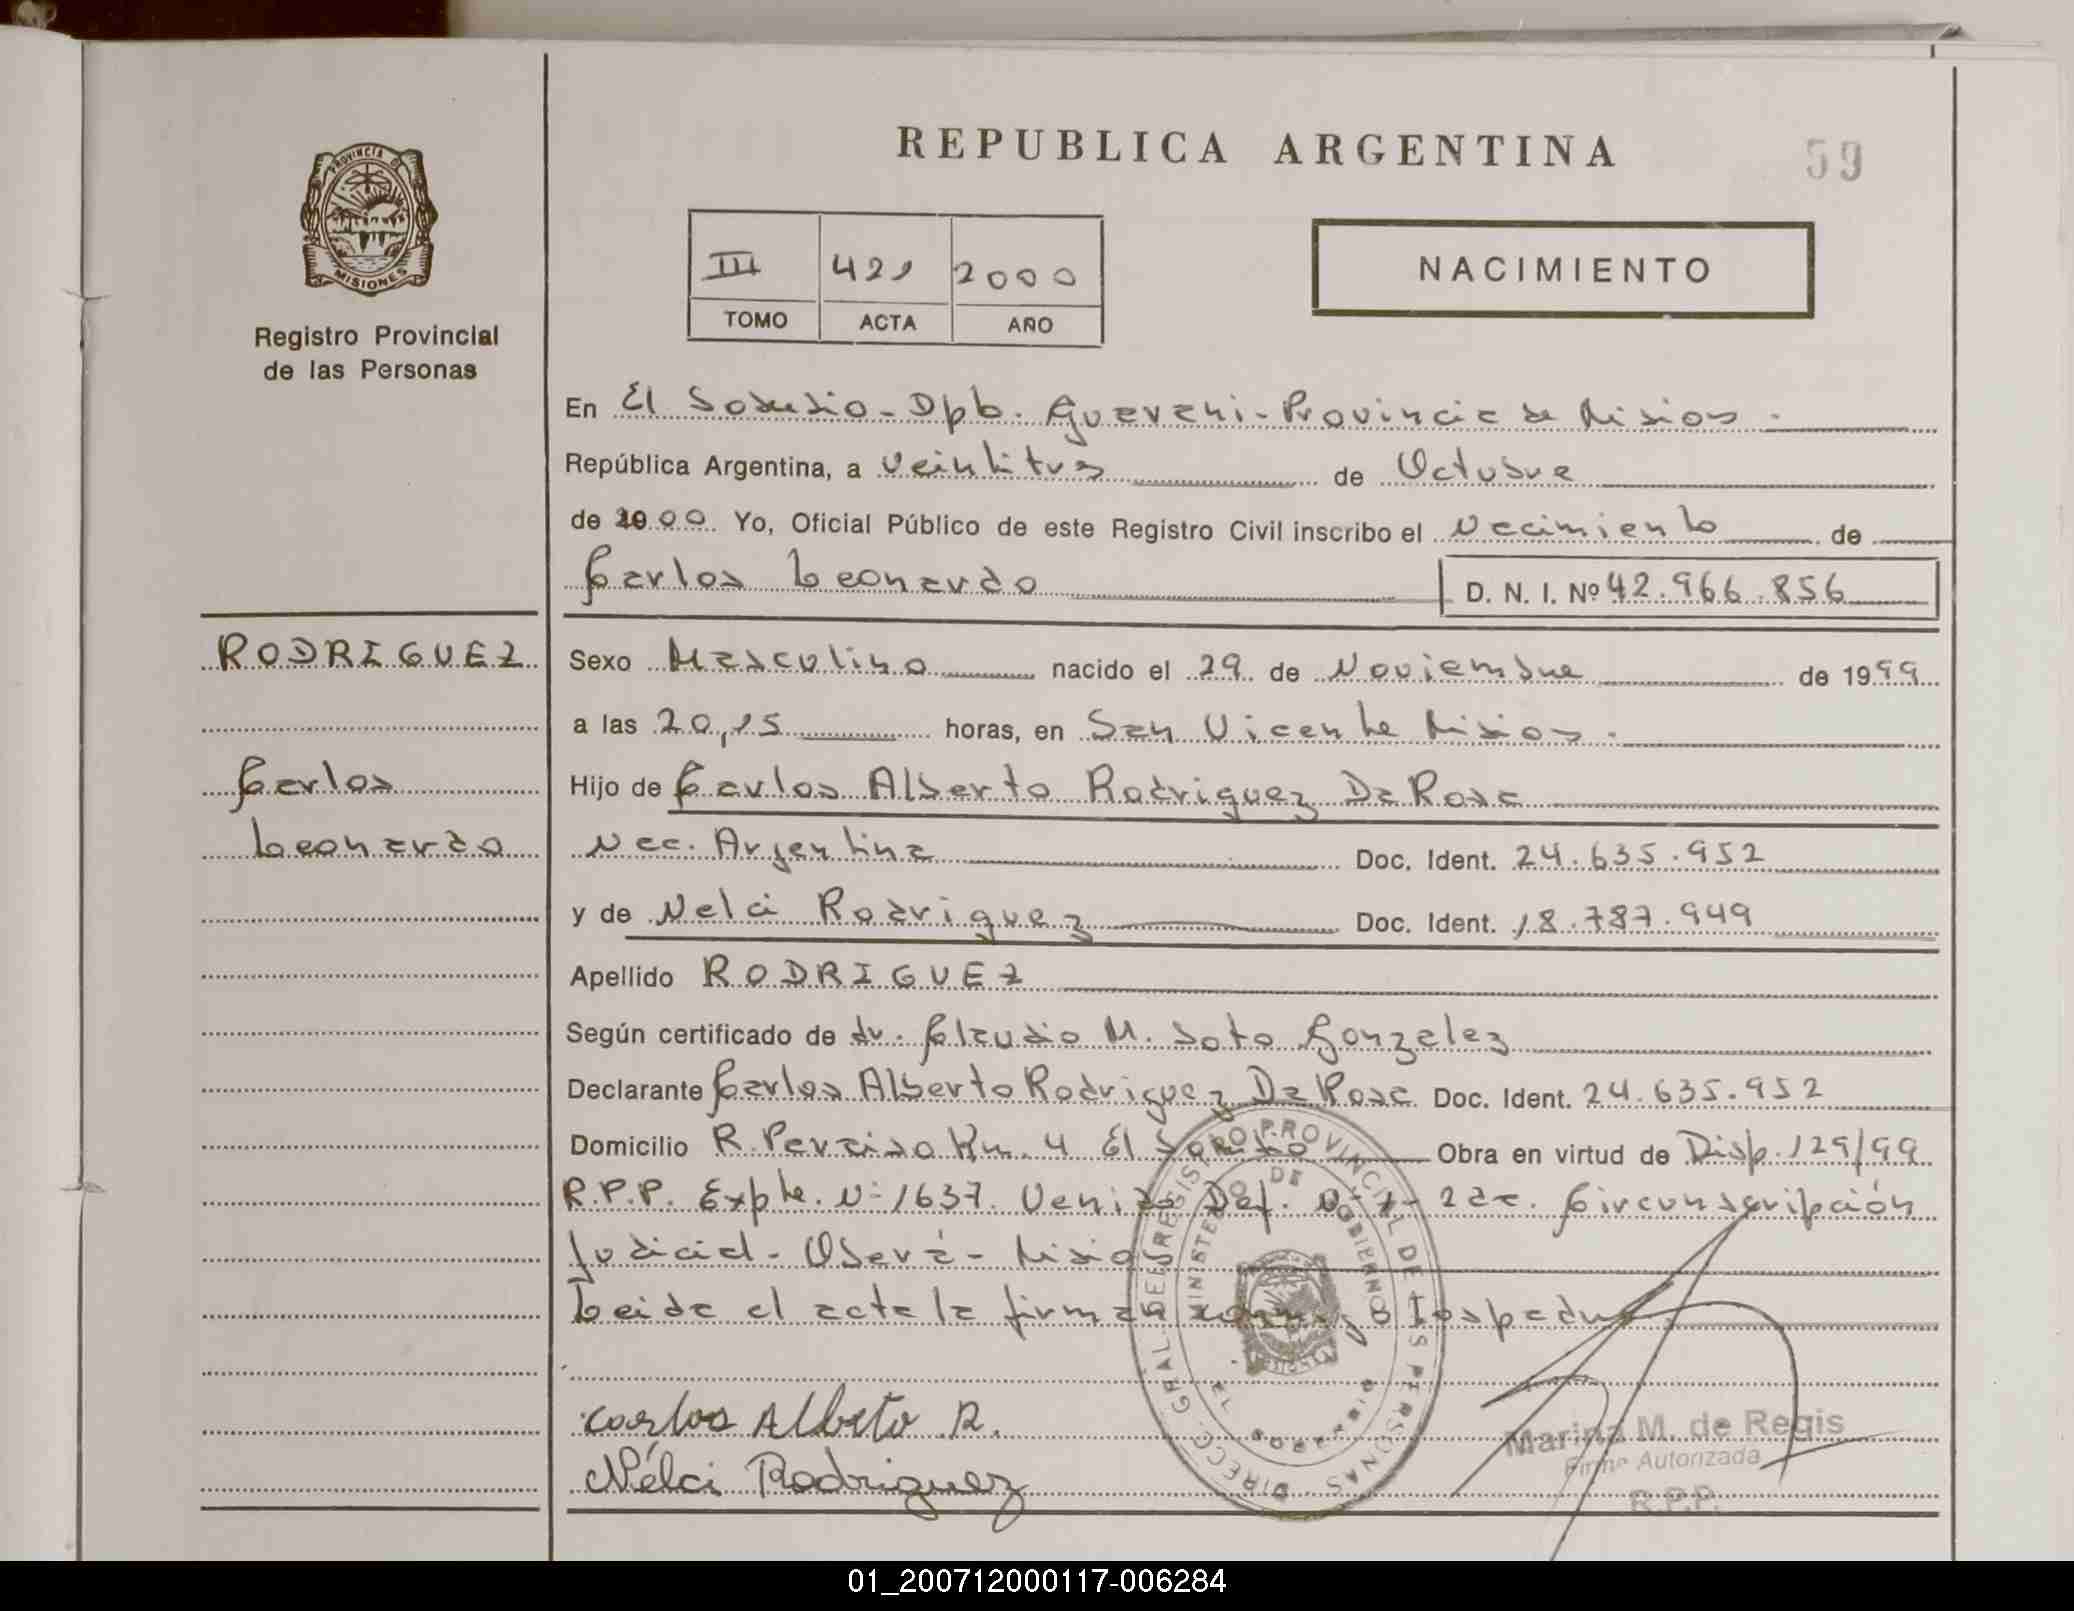 REPUBLICA ARGENTINA
59
PROVINCIA DE
MISIONES
Registro Provincial
de las Personas
III 421 2000
TOMO ACTA AÑO
NACIMIENTO
En El Soberbio - Dpto. Guarani - Provincia de Misiones.
República Argentina, a veintitres de Octubre
de 2000 Yo, Oficial Público de este Registro Civil inscribo el Nacimiento de
Carlos Leonardo D. N. I. Nº 42.966.856
RODRIGUEZ
Carlos
Leonardo
Sexo Masculino nacido el 29 de Noviembre de 1999
a las 20,15 horas, en San Vicente Misiones.
Hijo de Carlos Alberto Rodriguez Da Rosa
Nac. Argentina Doc. Ident. 24.635.952
y de Nelci Rodriguez Doc. Ident. 18.787.949
Apellido RODRIGUEZ
Según certificado de dr. Claudio M. Soto Gonzalez
Declarante Carlos Alberto Rodriguez Da Rosa Doc. Ident. 24.635.952
Domicilio R. Paraiso Km. 4 El Obra en virtud de Disp. 129/99
R.P.P. Expte. Nº 1637. Def. 2da. Circunscripción
Judicial - Oberá - Misiones
Leida el acta la firman
DIREC. GRAL. DEL REGISTRO PROVINCIAL DE LAS PERSONAS
MINISTERIO DE GOBIERNO
EL SOBERBIO
Carlos Alberto R.
Nélci Rodriguez
Marina M. de Regis
Firma Autorizada
R.P.P.
01_200712000117-006284